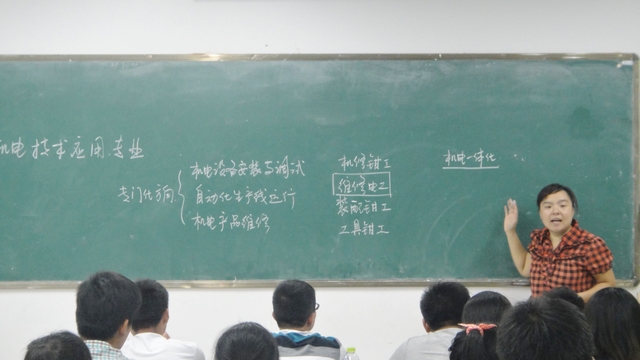 机电技术应用专业
专门化方向
机电设备安装与调试
自动化生产线运行
机电产品维修
机修钳工
维修电工
装配钳工
工具钳工
机电一体化